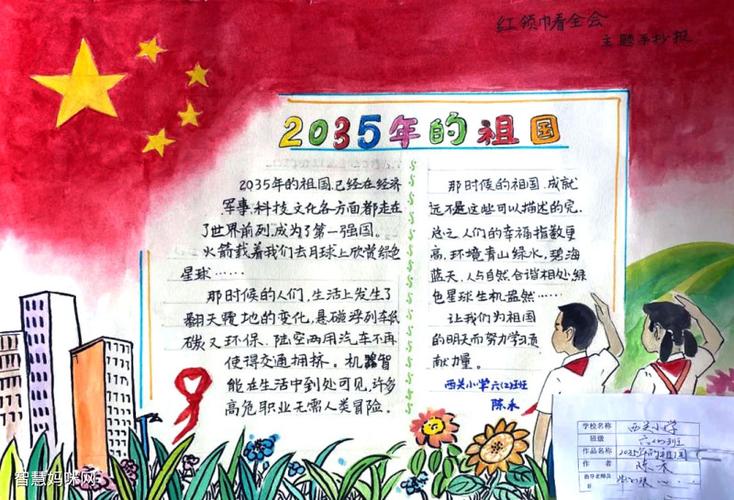 红领巾看全会
主题手抄报
2035年的祖国
2035年的祖国,已经在经济
军事,科技,文化各方面都走在
了世界前列,成为了第一强国。
火箭载着我们去月球上欣赏绿色
星球······
那时候的人们,生活上发生了
翻天覆地的变化,悬磁浮列车低
碳又环保、陆空两用汽车不再
使得交通拥挤。机器智
能在生活中到处可见,许多
高危职业无需人类冒险。
那时候的祖国,成就
远不是这些可以描述的完.
总之,人们的幸福指数更
高,环境青山绿水,碧海
蓝天,人与自然合谐相处,绿
色星球生机盎然······
让我们为祖国
的明天而努力学习,贡
献力量。
西关小学六(2)班
陈禾
学校名称 西关小学
班级 六(2)班
作品名称 2035年的祖国
作者 陈禾
指导老师
智慧妈咪网